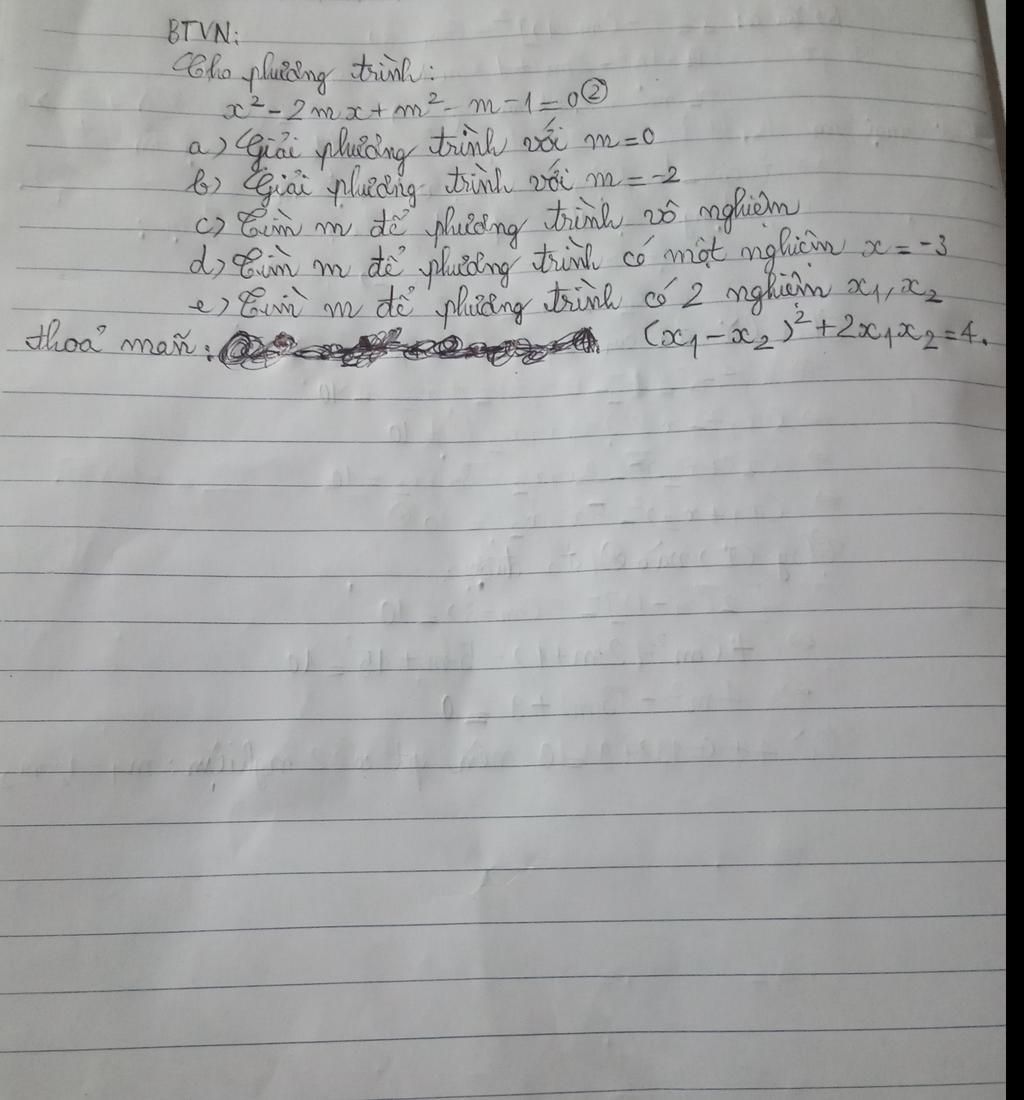 BTVN:
Cho phương trình:
x² - 2mx + m² - m - 1 = 0 ②
a) Giải phương trình với m = 0
b) Giải phương trình với m = -2
c) Tìm m để phương trình vô nghiệm
d) Tìm m để phương trình có một nghiệm x = -3
e) Tìm m để phương trình có 2 nghiệm x₁, x₂
thoả mãn: (x₁ - x₂)² + 2x₁x₂ = 4.